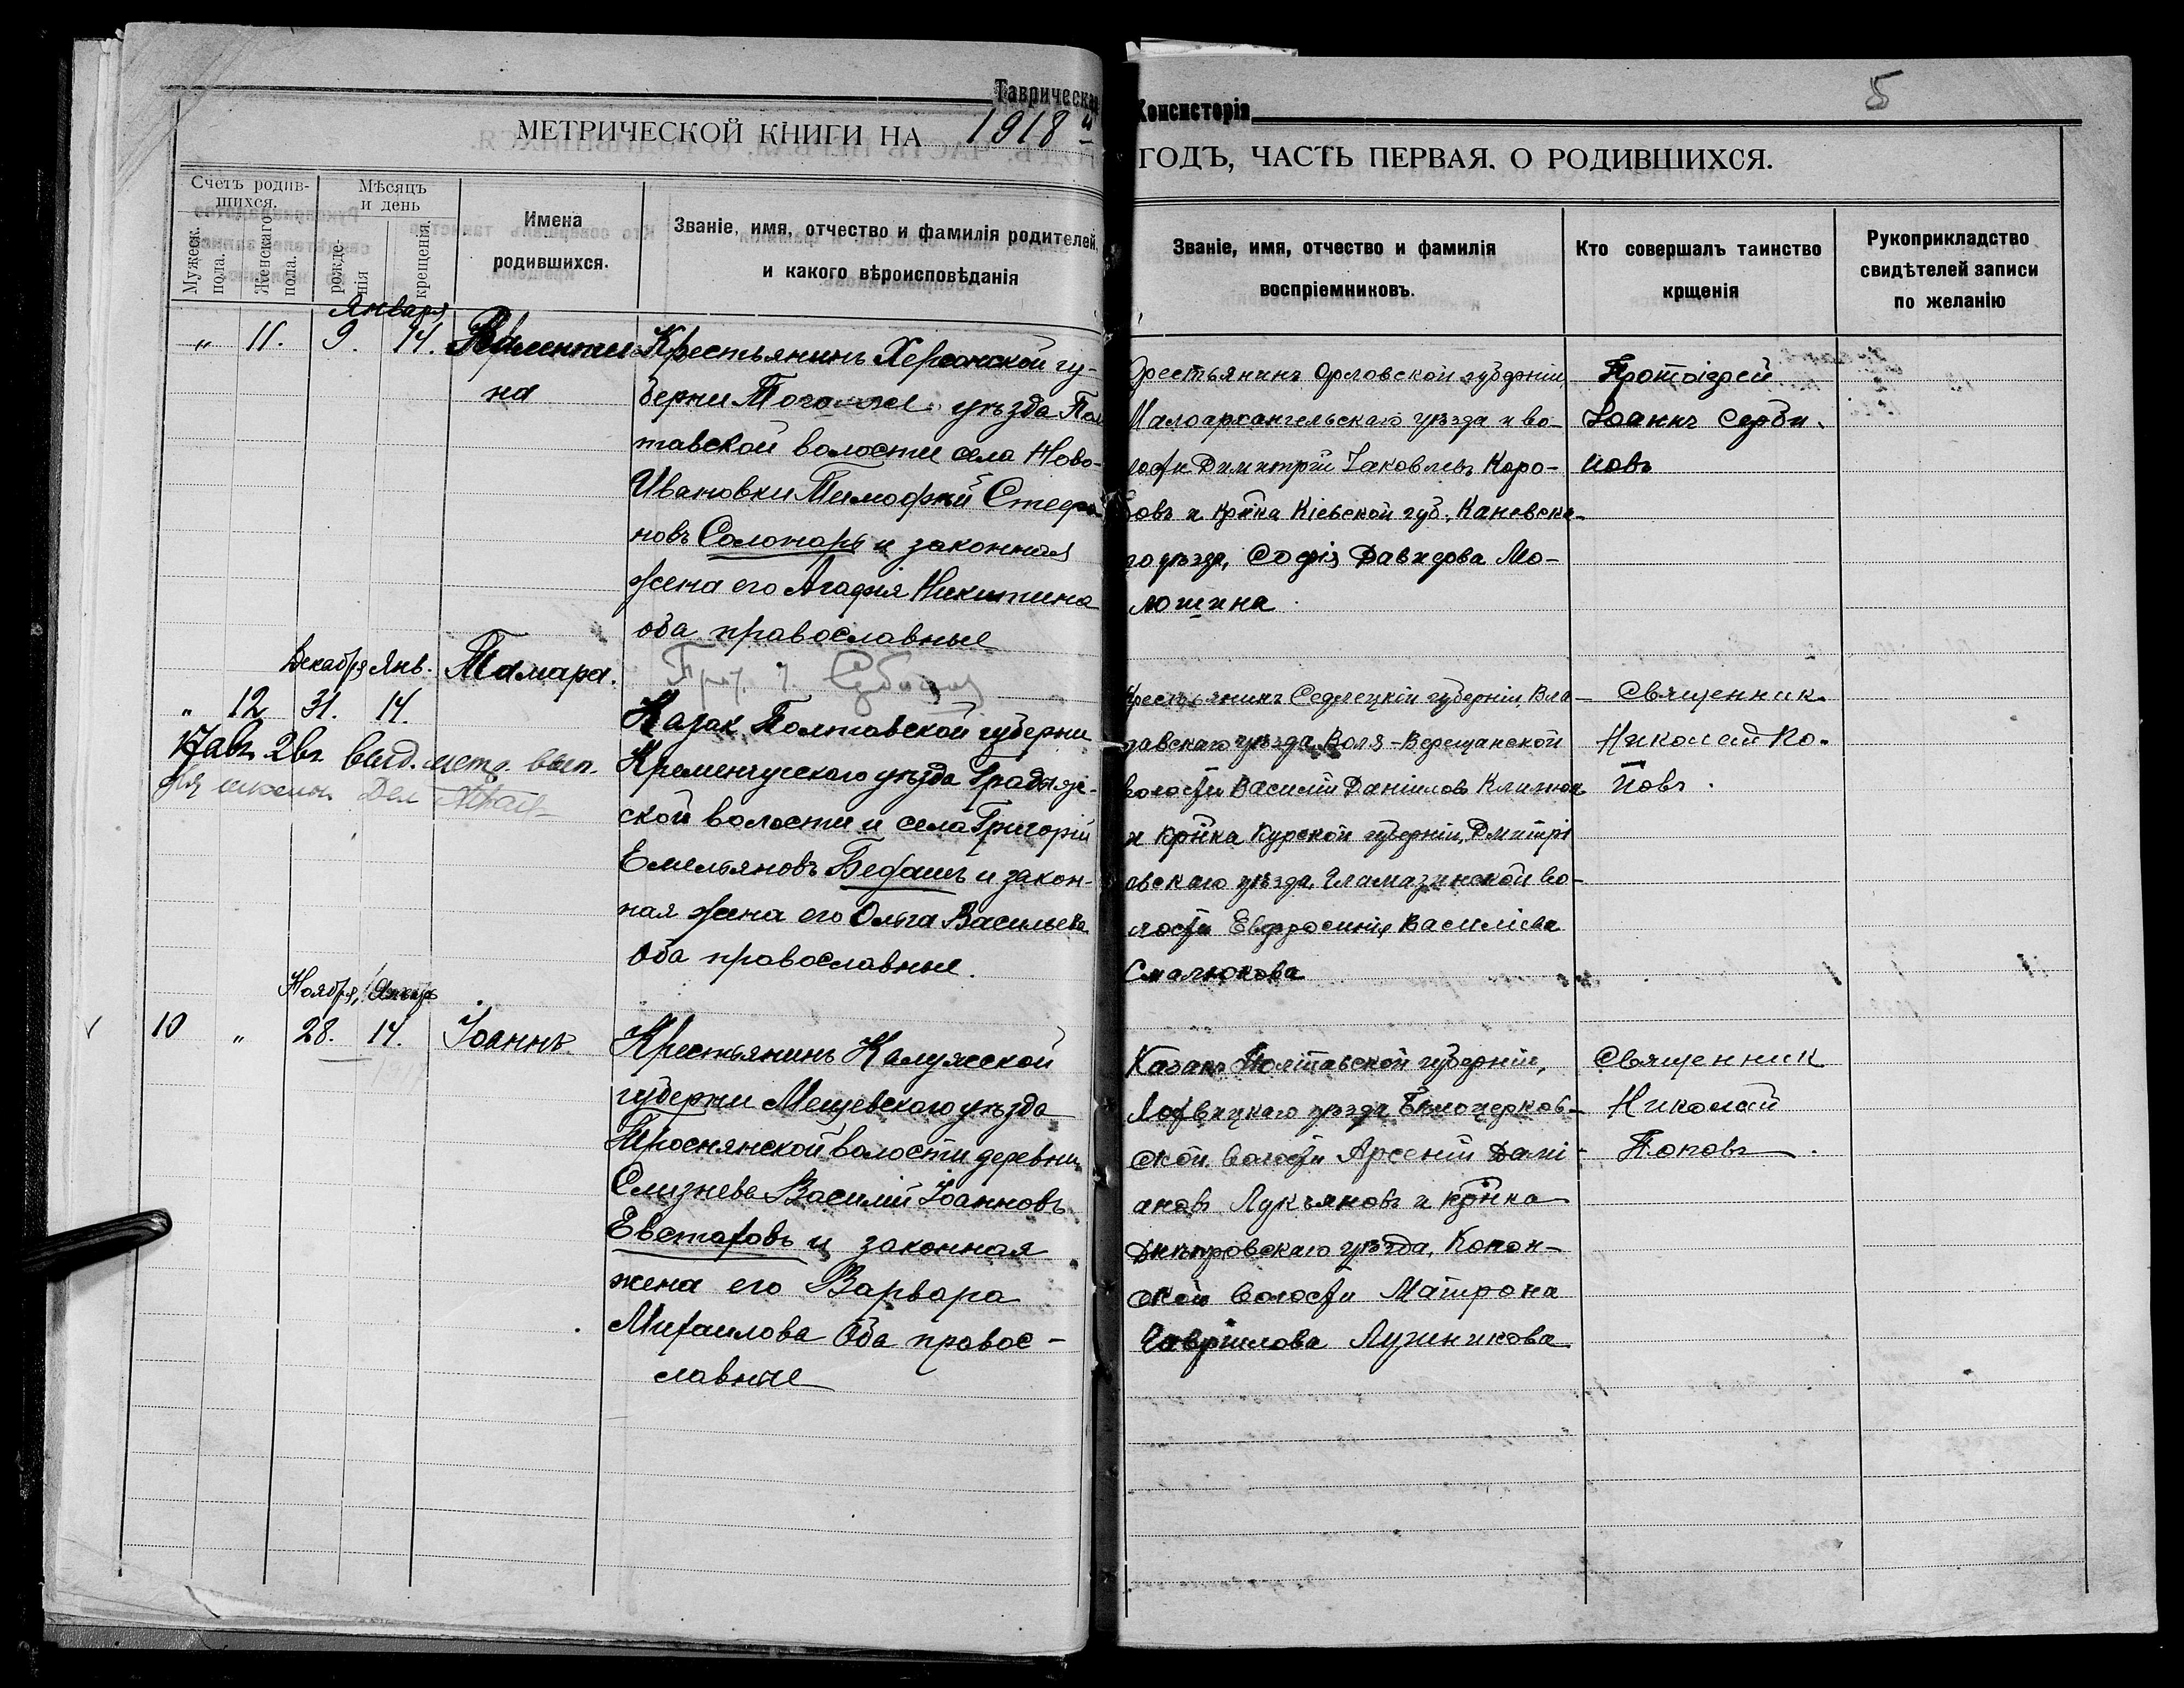 Таврическая Консисторія
5
МЕТРИЧЕСКОЙ КНИГИ НА 1918 й ГОДЪ, ЧАСТЬ ПЕРВАЯ. О РОДИВШИХСЯ.
Счетъ родив-
шихся.
Мужеск. пола.
Женскаго пола.
Мѣсяцъ
и день
рожде-
нія
крещенія.
Имена
родившихся.
Званіе, имя, отчество и фамилія родителей,
и какого вѣроисповѣданія
Званіе, имя, отчество и фамилія
воспріемниковъ.
Кто совершалъ таинство
крщенія
Рукоприкладство
свидѣтелей записи
по желанію
Января
" 11. 9. 14.
Валенти
на
Крестьянинъ Херсонской гу-
берни уѣзда Пол
тавской волости села Ново-
Ивановки Тимофей Стефа-
новъ Солонарь и законная
жена его Агафія Никитина
оба православные
Крестьянинъ Орловской губерніи
Малоархангельскаго уѣзда и во-
лости Димитрій Іаковлевъ Коро-
бовъ и кр-ка Кіевской губ., Каневска-
го уѣзда, Софія Давидова Мо-
люшина
Протоіерей
Іоаннъ Серби-
новъ
Декабря Янв.
" 12 31. 14.
Тамара.
Прот. І.
17 авг. 2вг. выд. метр. вып.
для школы
Казак Полтавской губерни
Кременчугскаго уѣзда Градижс-
ской волости и села Григорій
Емельяновъ Бефашъ и закон-
ная жена его Ольга Васильева
Оба православные.
Крестьянинъ Седлецкой губерніи, Вло-
давскаго уѣзда, Воля-Верещанской
волости Василій Даніиловъ
и кр-нка Курской губерніи, Дмитрі
евскаго уѣзда, Гламаздинской во-
лости Евфросинія Василіева
Смалюкова
Священник
Николай По-
повъ.
Ноября, Январь
10 " 28. 14.
1917
Іоаннъ.
Крестьянинъ Калужской
губерни Мещевскаго уѣзда
волости деревни
Слизнева Василій Іоанновъ
Евстафовъ и законная
жена его Варвара
Михаилова Оба правос-
лавные
Казакъ Полтавской губерніи,
Лохвицкаго уѣзда Бѣлоцерков-
ской волости Арсеній Дами-
ановъ Лукьяновъ и кр-нка
Днѣпровскаго уѣзда, Копан-
ской волости Матрона
Гавріилова Лузиникова
Священник
Николай
Поповъ.